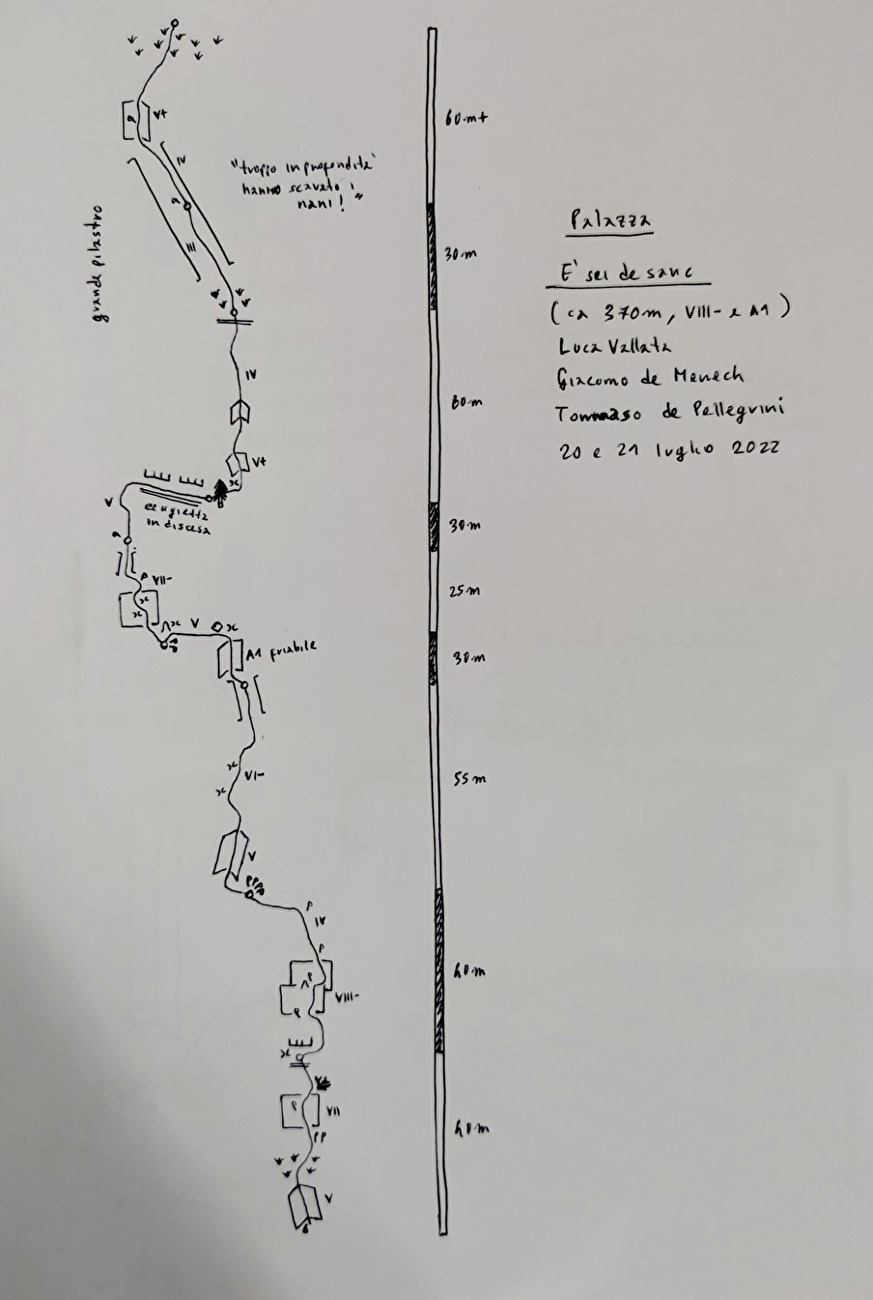 V+
60m+
IV
"troppo in profondità
hanno scavato i
nani!"
grande pilastro
III
30m
Palazza
E' sei de sanc
(ca 370m, VIII- e A1)
Luca Vallata
Giacomo de Menech
Tommaso de Pellegrini
20 e 21 luglio 2022
IV
60m
V+
V
cengietta
in discesa
30m
VII-
25m
V
A1 friabile
30m
VI-
55m
V
PP
P
IV
P
P
VIII-
P
40m
P
VII
PP
40m
V